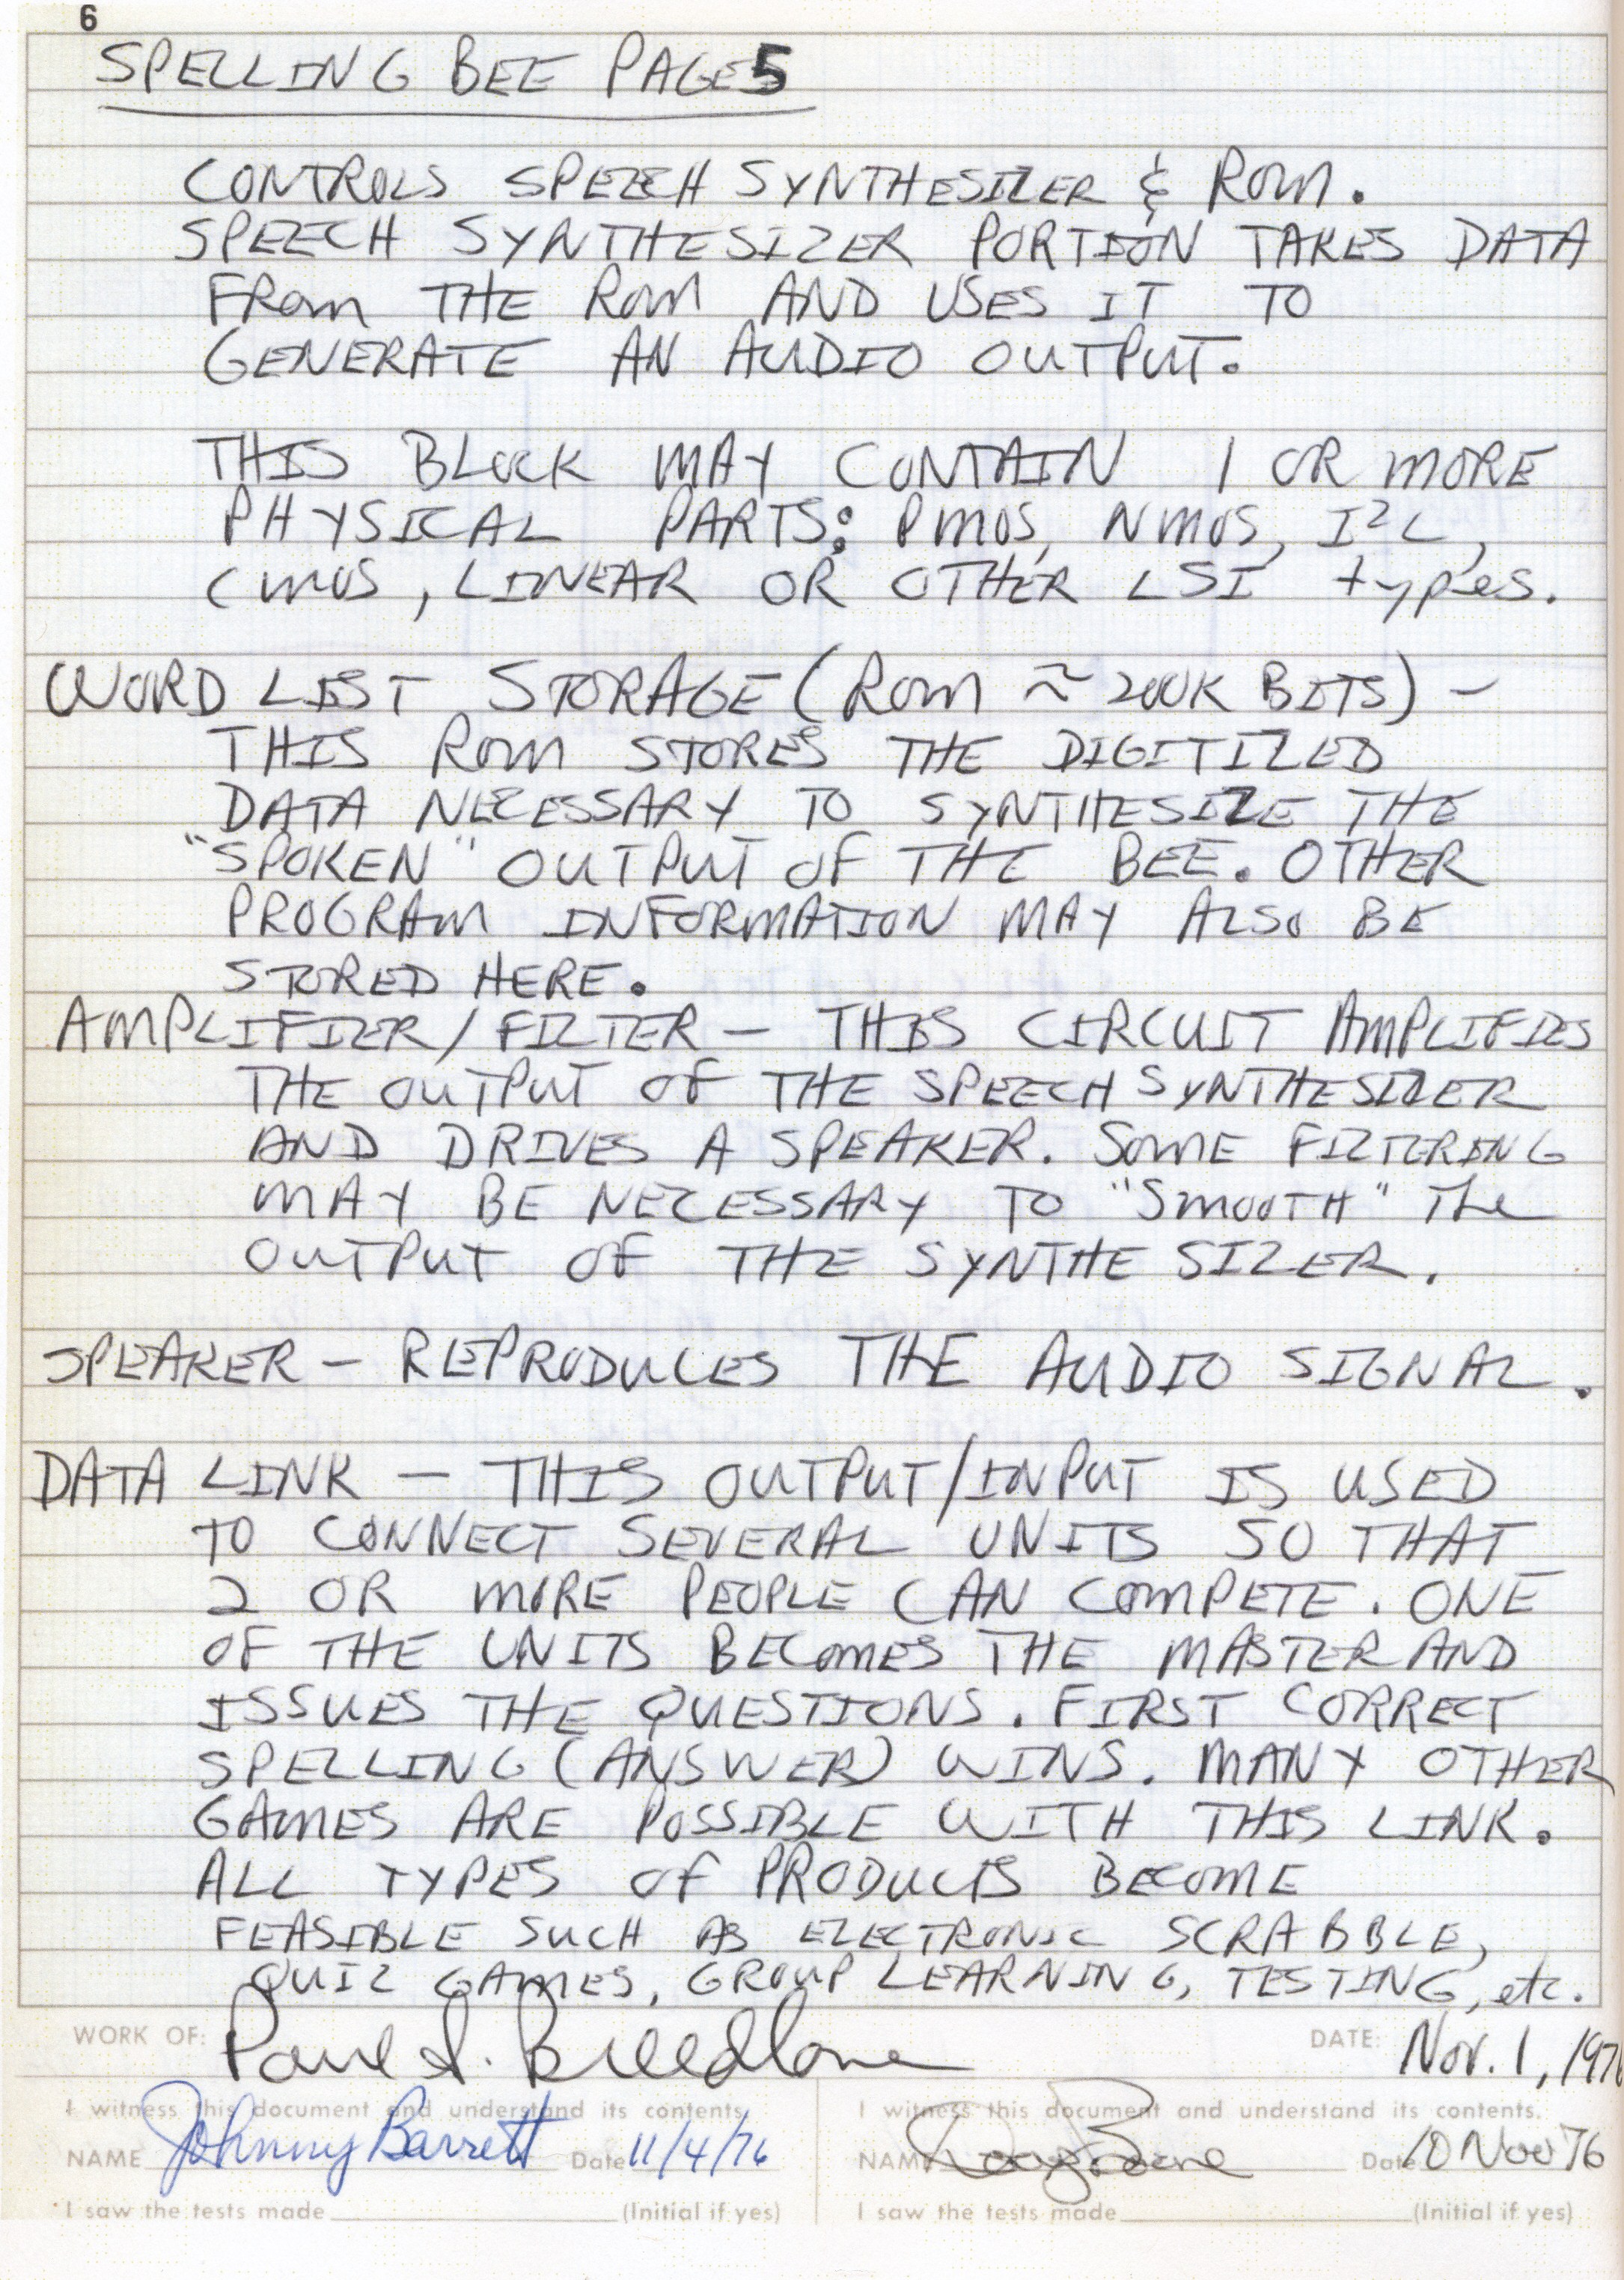 6
SPELLING BEE PAGE 5
CONTROLS SPEECH SYNTHESIZER & ROM.
SPEECH SYNTHESIZER PORTION TAKES DATA
FROM THE ROM AND USES IT TO
GENERATE AN AUDIO OUTPUT.
THIS BLOCK MAY CONTAIN 1 OR MORE
PHYSICAL PARTS: PMOS, NMOS, I²L,
CMOS, LINEAR OR OTHER LSI types.
WORD LIST STORAGE (ROM ≈ 200K BITS) –
THIS ROM STORES THE DIGITIZED
DATA NECESSARY TO SYNTHESIZE THE
"SPOKEN" OUTPUT OF THE BEE. OTHER
PROGRAM INFORMATION MAY ALSO BE
STORED HERE.
AMPLIFIER/FILTER – THIS CIRCUIT AMPLIFIES
THE OUTPUT OF THE SPEECH SYNTHESIZER
AND DRIVES A SPEAKER. SOME FILTERING
MAY BE NECESSARY TO "SMOOTH" The
OUTPUT OF THE SYNTHESIZER.
SPEAKER – REPRODUCES THE AUDIO SIGNAL.
DATA LINK – THIS OUTPUT/INPUT IS USED
TO CONNECT SEVERAL UNITS SO THAT
2 OR MORE PEOPLE CAN COMPETE. ONE
OF THE UNITS BECOMES THE MASTER AND
ISSUES THE QUESTIONS. FIRST CORRECT
SPELLING (ANSWER) WINS. MANY OTHER
GAMES ARE POSSIBLE WITH THIS LINK.
ALL TYPES OF PRODUCTS BECOME
FEASIBLE SUCH AS ELECTRONIC SCRABBLE,
QUIZ GAMES, GROUP LEARNING, TESTING, etc.
WORK OF: Paul S. Breedlove DATE: Nov. 1, 1976
I witness this document and understand its contents.
NAME Johnny Barrett Date 11/4/76
I saw the tests made (Initial if yes)
I witness this document and understand its contents.
NAME Date 10 Nov 76
I saw the tests made (Initial if yes)